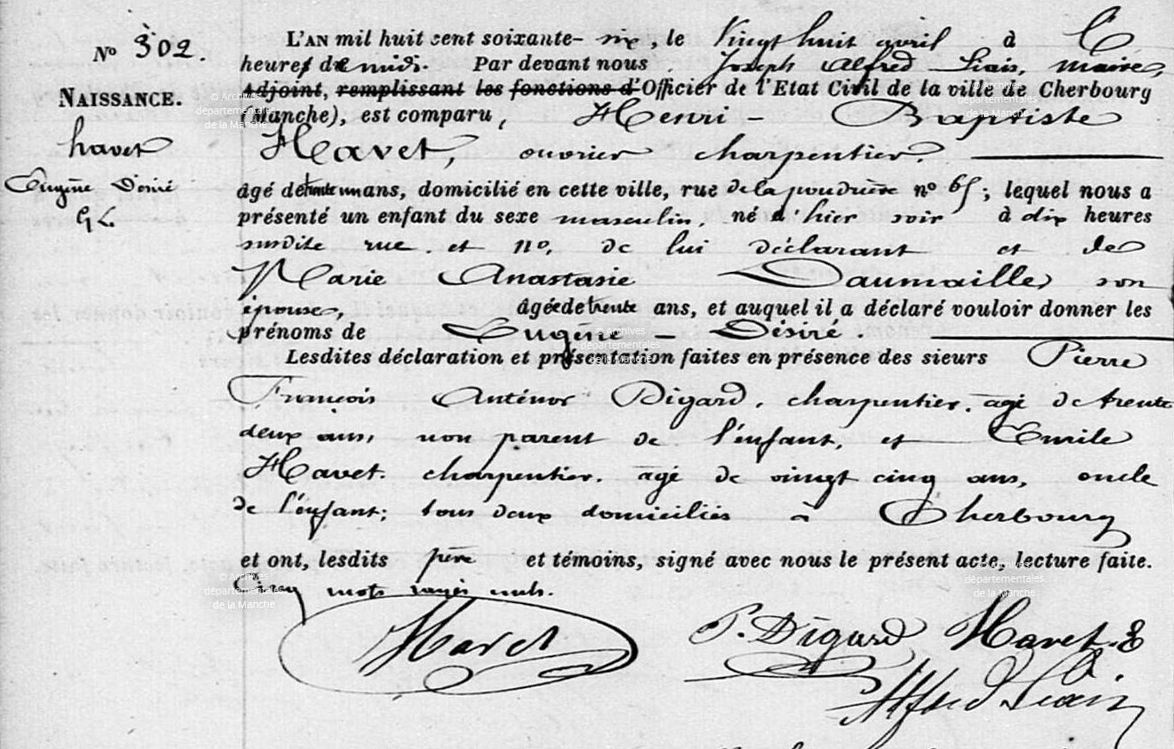 No 302.
NAISSANCE.
havet
Eugène Désiré
L'AN mil huit cent soixante-six, le Vingt huit avril à
heures de midi. Par devant nous Joseph Alfred Liais, maire,
adjoint, remplissant les fonctions d'Officier de l'Etat Civil de la ville de Cherbourg
(Manche), est comparu, Henri-Baptiste
Havet, ouvrier charpentier.
âgé de trente un ans, domicilié en cette ville, rue de la poudrière no 65; lequel nous a
présenté un enfant du sexe masculin, né d'hier soir à dix heures
susdite rue et no, de lui déclarant et de
Marie Anastasie Daumaille, son
épouse, âgée de trente ans, et auquel il a déclaré vouloir donner les
prénoms de Eugène-Désiré.
Lesdites déclaration et présentation faites en présence des sieurs Pierre
François Anténor Digard, charpentier, agé de trente
deux ans, non parent de l'enfant, et Emile
Havet, charpentier, agé de vingt cinq ans, oncle
de l'enfant; tous deux domiciliés à Cherbourg
et ont, lesdits père et témoins, signé avec nous le présent acte, lecture faite.
Cinq mots rayés nuls.
Havet P. Digard Havet E
Alfred Liais
© Archives
départementales
de la Manche